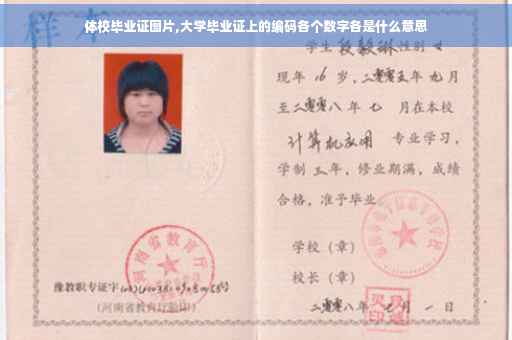 体校毕业证图片,大学毕业证上的编码各个数字各是什么意思
样本
学生段毅琳性别女
现年16岁,二零零五年九月
至二零零八年七月在本校
计算机应用 专业学习,
学制三年,修业期满,成绩
合格,准予毕业
学校(章)
校长(章)
二零零八年七月一日
河南省教育厅
豫教职专证字
(河南省教育厅验印)